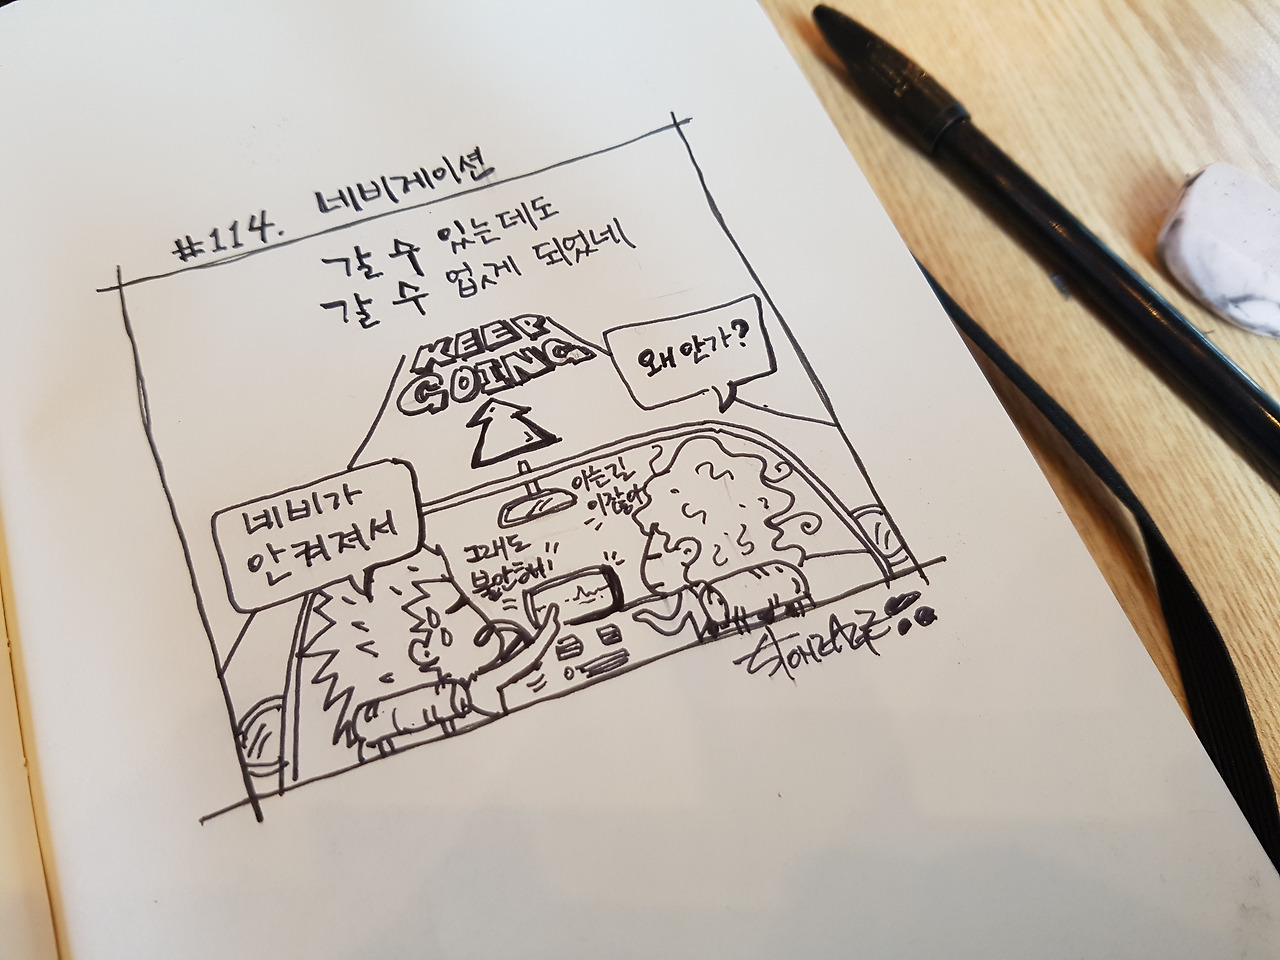 #114. 네비게이션
갈 수 있는데도
갈 수 없게 되었네
KEEP
GOING
왜 안가?
네비가
안켜져서
아는길
이잖아
그래도
불안해!